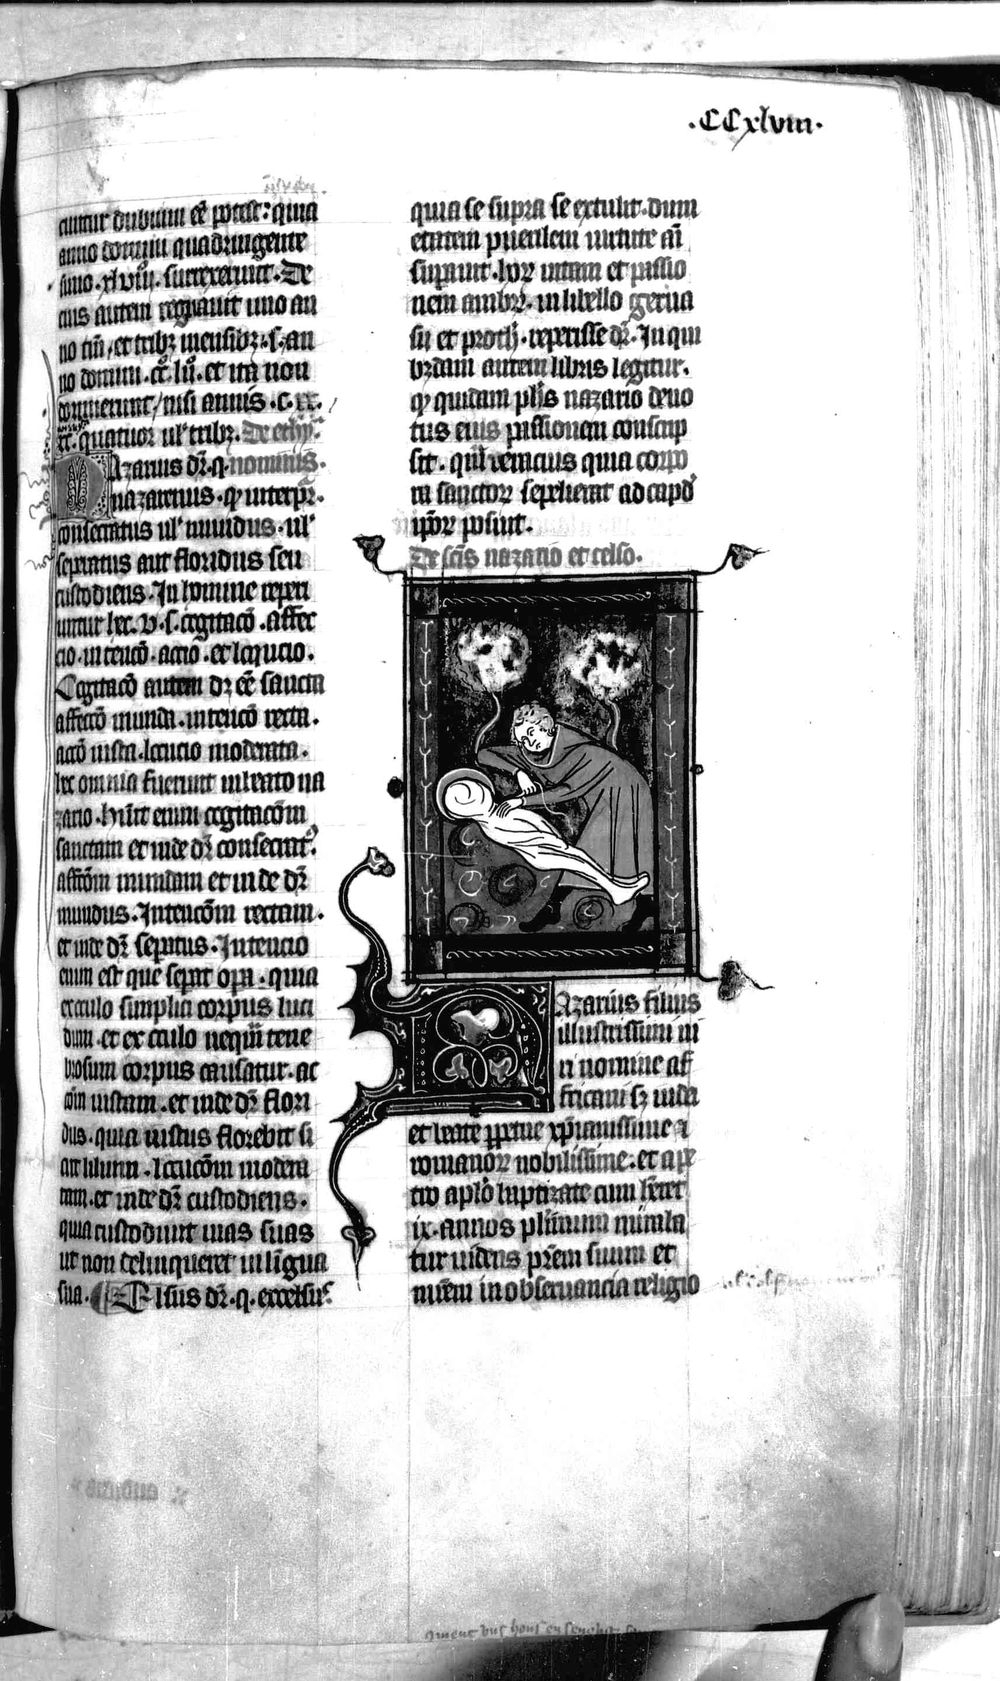 .CCxlviii.
citatur dubium eē potest: quia
anno domini quadringente
simo .xlviii. surrexerunt. De
cius autem regnauit uno an
no tm̄. et tribꝫ mensibꝫ. s. an
no domini .cc. lii. et ita non
dormierunt / nisi annis .c. xx.
quatuor ul' tribꝫ. De ethy.
Nazarius dr̄. q. nominis.
nazareus. qͥ interp̄r.
consecratus ul' mundus. ul'
sep̄atus aut floridus seu
custodiens. In homine reperi
untur hec .v. s. cogitacō. affec
cio. intencō. actio. et locucio.
Cogitacō autem dꝫ eē sancta
affeccō munda. intencō recta.
actō iusta. locucio moderata.
hec omnia fuerunt in beato na
zario. Hūit enim cogitacōm
sanctam et inde dr̄ consecrat'.
affcōm mundam et inde dr̄
mundus. Intencōm rectam.
et inde dr̄ sep̄atus. Intencio
enim est que sep̄at op̄a. quia
ex oculo simplici corpus luci
dum. et ex oculo nequā tene
brosum corpus causatur. ac
cōm iustam. et inde dr̄ flori
dus. quia iustus florebit si
cut lilium. locucōm modera
tam. et inde dr̄ custodiens.
quia custodiuit uias suas
ut non delinqueret in lingua
sua. Celsus dr̄. q. excelsus.
quia se supra se extulit. dum
etatem puerilem uirtute aī
sup̄auit. hoꝝ uitam et passio
nem ambrꝰ. in libello gerua
sii et proth̄. reperisse dr̄. In qui
bꝫdam autem libris legitur.
qͥ quidam ph̄s nazario deuo
tus eius passionem conscrip
sit. quā ceracius quia corpo
ra sanctoꝝ sepelierat ad capđ
ip̄oꝝ posuit.
De scīs nazario et celso.
Nazarius filius
illustrissimi ui
ri nomine af
fricani sꝫ iuda
et beate ꝑpetue xp̄ianissime ⁊
romanoꝝ nobilissime. et a pe
tro aplō baptizate cum h̄eret
ix. annos plimum mirala
tur uidens pr̄em suum et
mr̄em in obseruancia religio